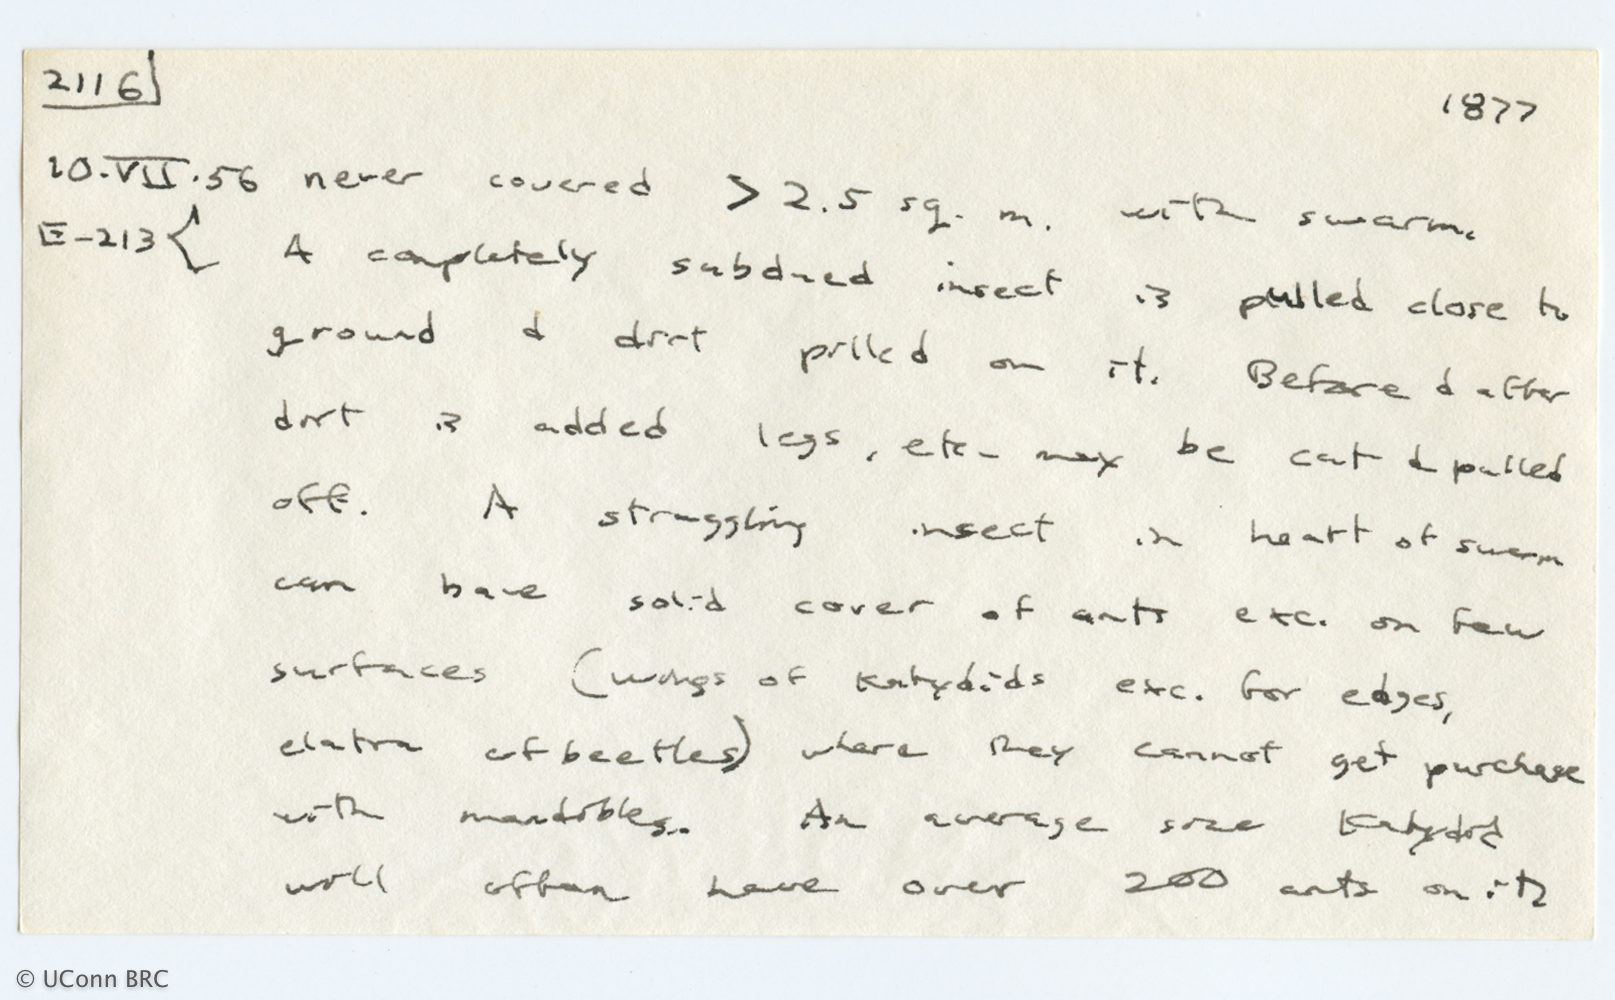 2116
1877
10.VII.56 never covered > 2.5 sq. m. with swarm.
E-213{ A completely subdued insect is pulled close to
ground & dirt piled on it. Before & after
dirt is added legs, etc. may be cut & pulled
off. A struggling insect in heart of swarm
can have solid cover of ants exc. on few
surfaces (wings of katydids exc. for edges,
elatra of beetles) where they cannot get purchase
with mandibles. An average size katydid
will often have over 200 ants on it
© UConn BRC